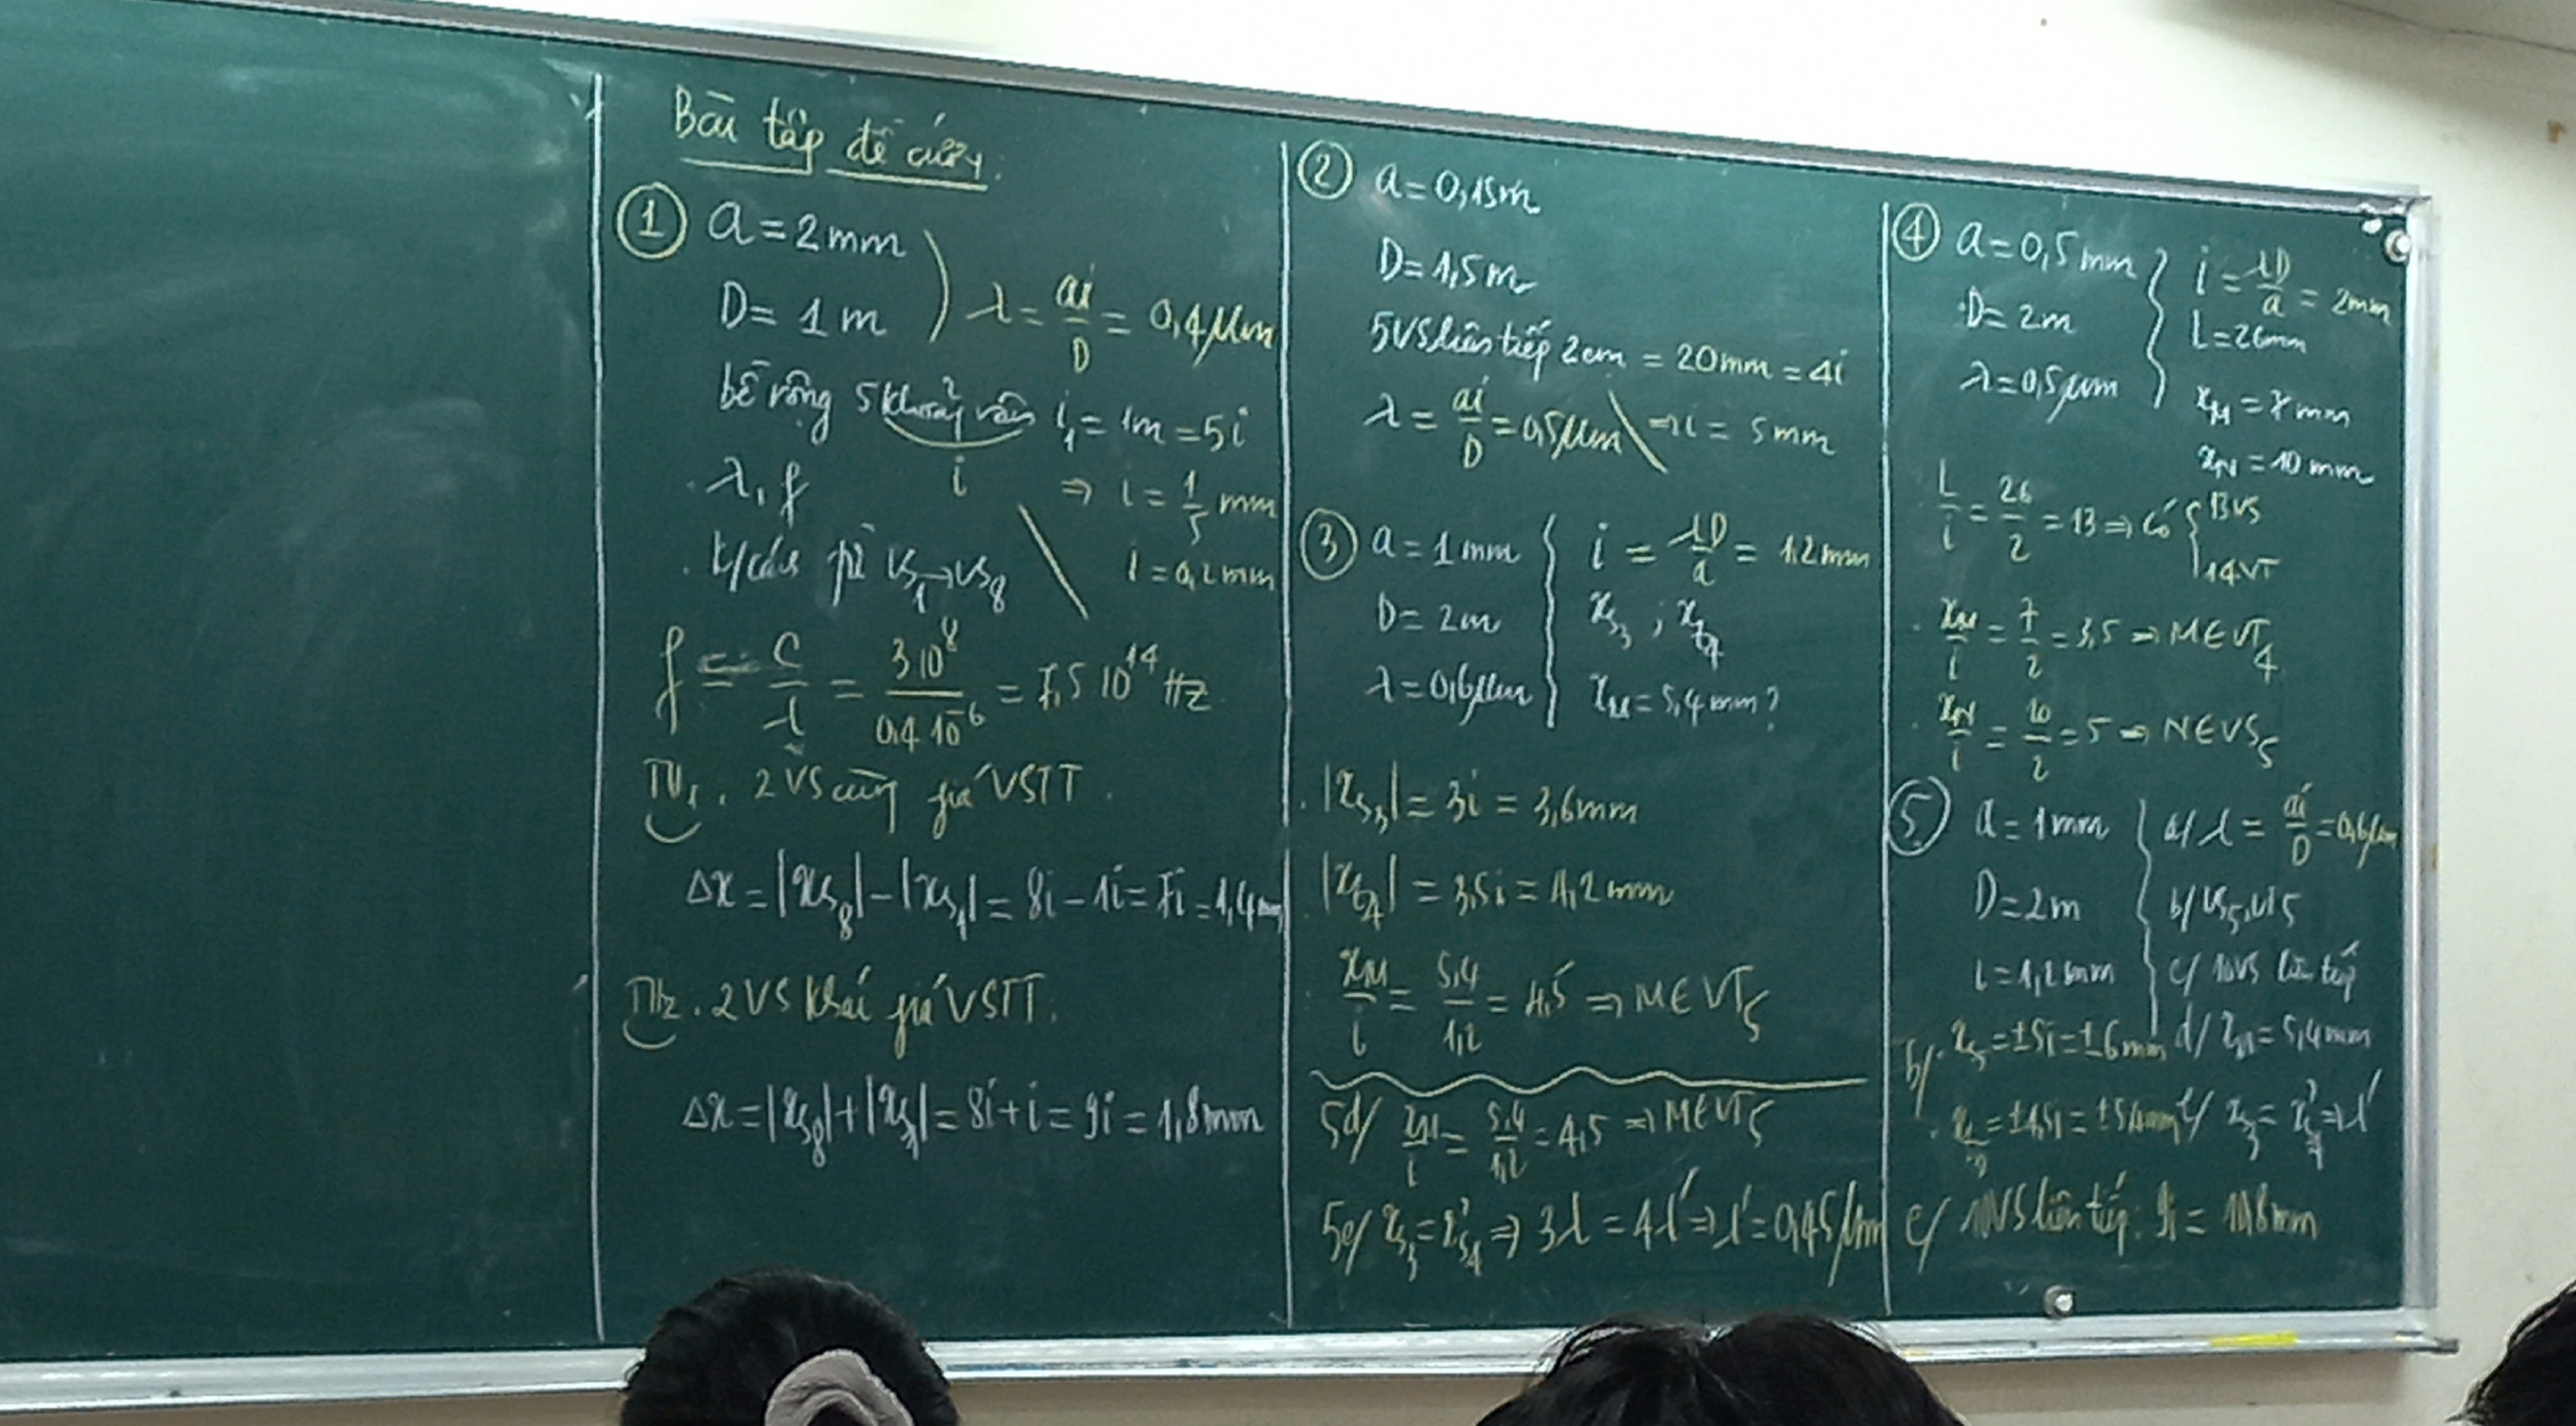 Bài tập đề cương.
① a = 2mm
D = 1m
λ = ai/D = 0,4μm
bề rộng 5 khoảng vân i₁ = 1m = 5i
i
. λ, f
⇒ i = 1/5 mm
. k/cách từ VS₁→VS₈
i = 0,2mm
f = c/λ = 3.10⁸/0,4.10⁻⁶ = 7,5.10¹⁴ Hz
TH₁. 2 VS cùng phía VSTT.
Δx = |xs₈| - |xs₁| = 8i - 1i = 7i = 1,4mm
TH₂. 2 VS khác phía VSTT.
Δx = |xs₈| + |xs₁| = 8i + i = 9i = 1,8mm
② a = 0,15m
D = 1,5m
5VS liên tiếp 2cm = 20mm = 4i
λ = ai/D = 0,5μm ⇒ i = 5mm
③ a = 1mm
D = 2m
λ = 0,6μm
i = λD/a = 1,2mm
xs₃ ; xt₄
xM = 5,4mm?
. |xs₃| = 3i = 3,6mm
. |xt₄| = 3,5i = 4,2mm
xM/i = 5,4/1,2 = 4,5 ⇒ M ∈ VT₅
5d/ xM/i = 5,4/1,2 = 4,5 ⇒ M ∈ VT₅
5e/ xs₃ = x's₄ ⇒ 3λ = 4λ' ⇒ λ' = 0,45μm
④ a = 0,5mm
D = 2m
λ = 0,5μm
i = λD/a = 2mm
L = 26mm
xM = 7mm
xN = 10mm
L/i = 26/2 = 13 ⇒ Có { 13VS
14VT
. xM/i = 7/2 = 3,5 ⇒ M ∈ VT₄
. xN/i = 10/2 = 5 ⇒ N ∈ VS₅
⑤ a = 1mm
D = 2m
i = 1,2mm
a/ λ = ai/D = 0,6μm
b/ VS₅, VT₅
c/ 10VS liên tiếp
d/ xM = 5,4mm
e/ x₃ = x'₄ ⇒ λ'
b/ . xs₅ = ±5i = ±6mm
. xt₅ = ±4,5i = ±5,4mm
c/ 10VS liên tiếp: 9i = 10,8mm